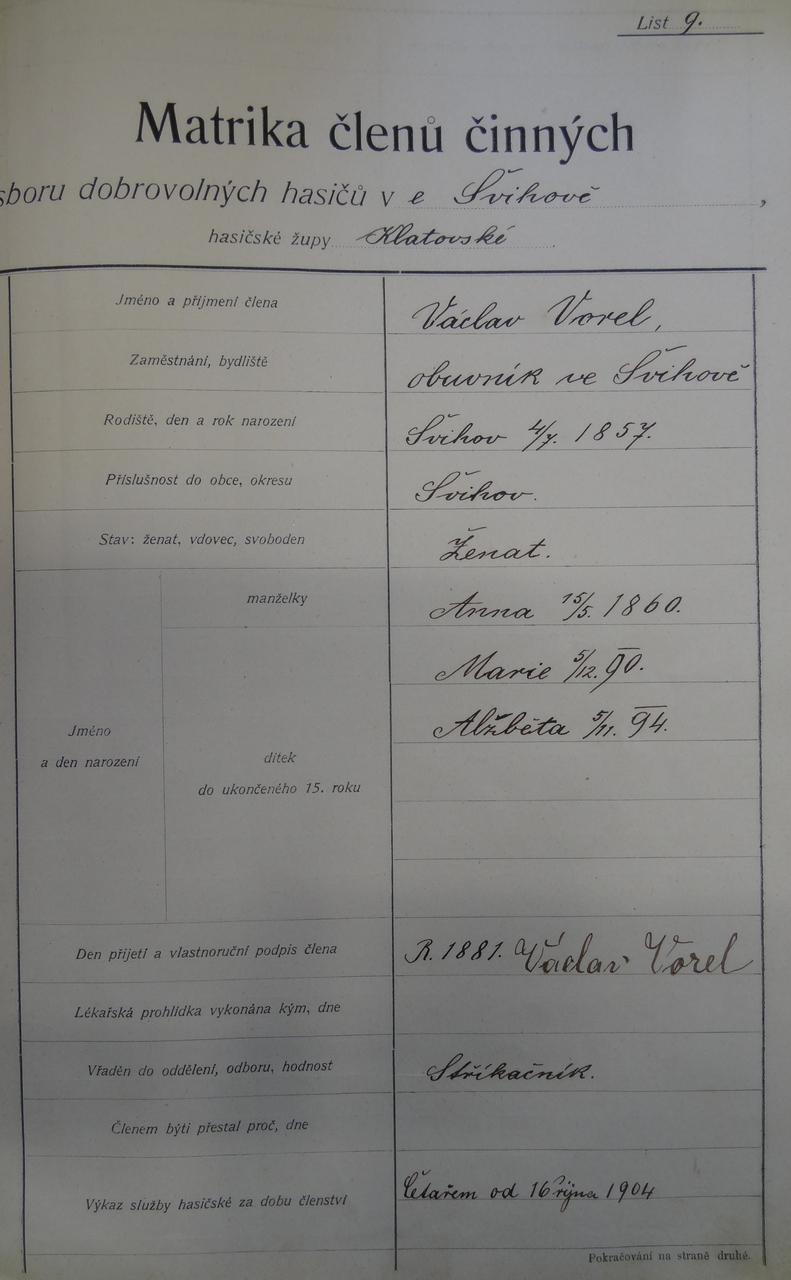 List 9.
Matrika členů činných
sboru dobrovolných hasičů v e Švihově,
hasičské župy Klatovské
Jméno a příjmení člena Václav Vorel,
Zaměstnání, bydliště obuvník ve Švihově
Rodiště, den a rok narození Švihov 4/7. 1857.
Příslušnost do obce, okresu Švihov.
Stav: ženat, vdovec, svoboden Ženat.
manželky Anna 15/5. 1860.
Marie 5/12. 90.
Jméno Alžběta 5/11. 94.
a den narození dítek
do ukončeného 15. roku
Den přijetí a vlastnoruční podpis člena R. 1881. Václav Vorel
Lékařská prohlídka vykonána kým, dne
Vřaděn do oddělení, odboru, hodnost Stříkačník.
Členem býti přestal proč, dne
Výkaz služby hasičské za dobu členství Četařem od 16 října 1904
Pokračování na straně druhé.